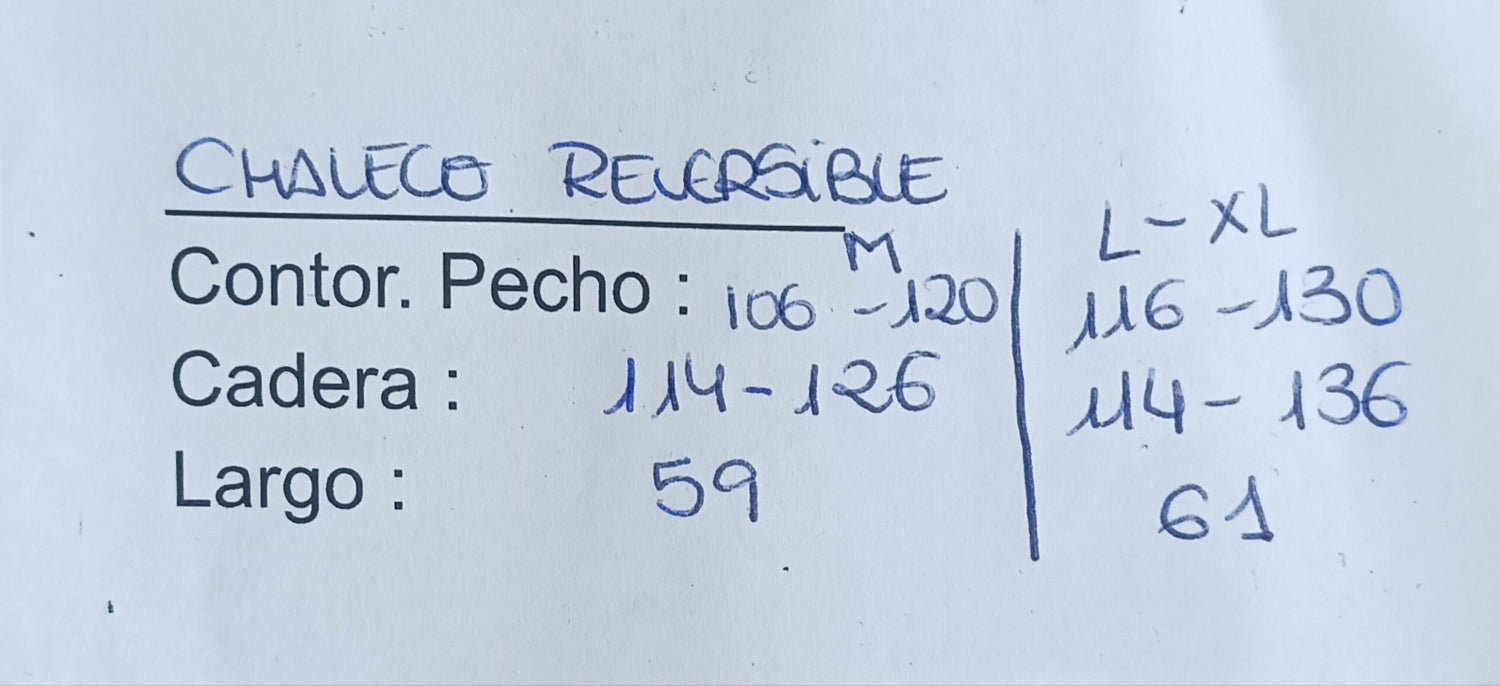 CHALECO REVERSIBLE
M | L - XL
Contor. Pecho : 106 - 120 | 116 - 130
Cadera : 114 - 126 | 114 - 136
Largo : 59 | 61